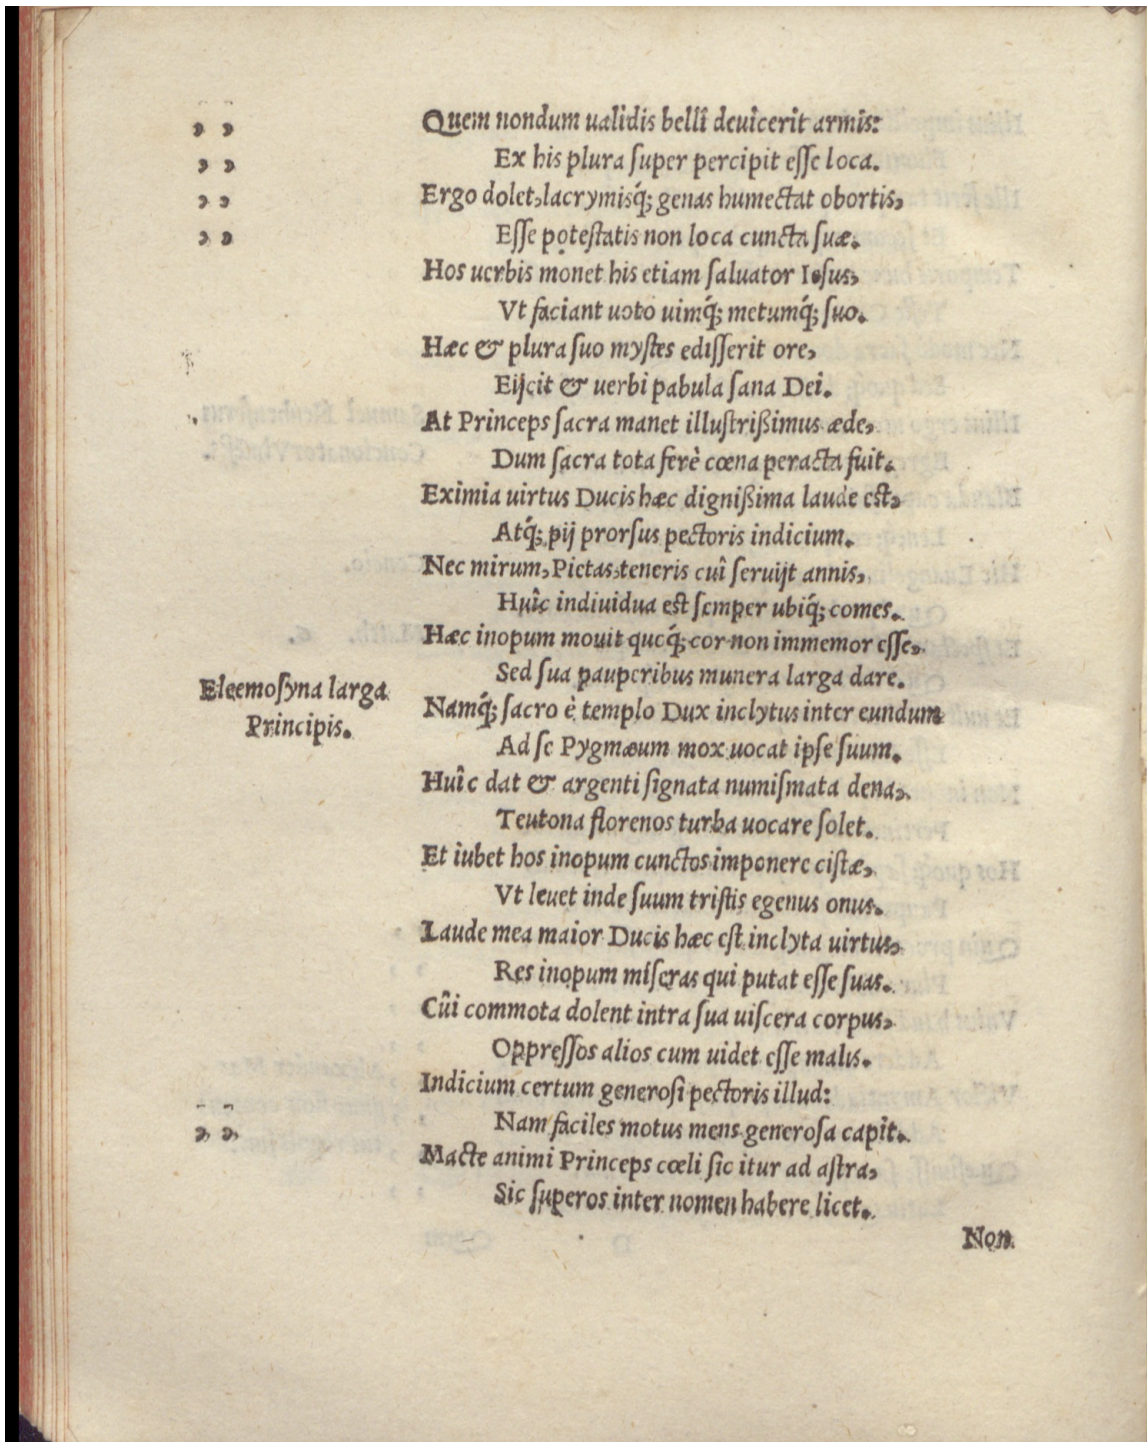 „ Quem nondum ualidis belli deuicerit armis:
„ Ex his plura ſuper percipit eſſe loca.
„ Ergo dolet, lacrymisq́; genas humectat obortis,
„ Eſſe poteſtatis non loca cuncta ſuæ.
Hos uerbis monet his etiam ſaluator Ieſus,
Vt faciant uoto uimq́; metumq́; ſuo.
Hæc & plura ſuo myſtes ediſſerit ore,
Eijcit & uerbi pabula ſana Dei.
At Princeps ſacra manet illuſtrißimus æde,
Dum ſacra tota ferè cœna peracta fuit.
Eximia uirtus Ducis hæc digniſsima laude eſt,
Atq́; pij prorſus pectoris indicium.
Nec mirum, Pietas teneris cuî ſeruijt annis,
Huîc indiuidua eſt ſemper ubiq́; comes.
Hæc inopum mouit queq́; cor non immemor eſſe,
Sed ſua pauperibus munera larga dare.
Eleemoſyna larga
Principis.
Namq́; ſacro è templo Dux inclytus inter eundum
Ad ſe Pygmæum mox uocat ipſe ſuum.
Huîc dat & argenti ſignata numiſmata dena,
Teutona florenos turba uocare ſolet.
Et iubet hos inopum cunctos imponere ciſtæ,
Vt leuet inde ſuum triſtis egenus onus.
Laude mea maior Ducis hæc eſt inclyta uirtus,
Res inopum miſeras qui putat eſſe ſuas.
Cûi commota dolent intra ſua uiſcera corpus,
Oppreſſos alios cum uidet eſſe malis.
Indicium certum generoſi pectoris illud:
„ Nam faciles motus mens generoſa capit.
Macte animi Princeps cœli ſic itur ad aſtra,
Sic ſuperos inter nomen habere licet.
Non